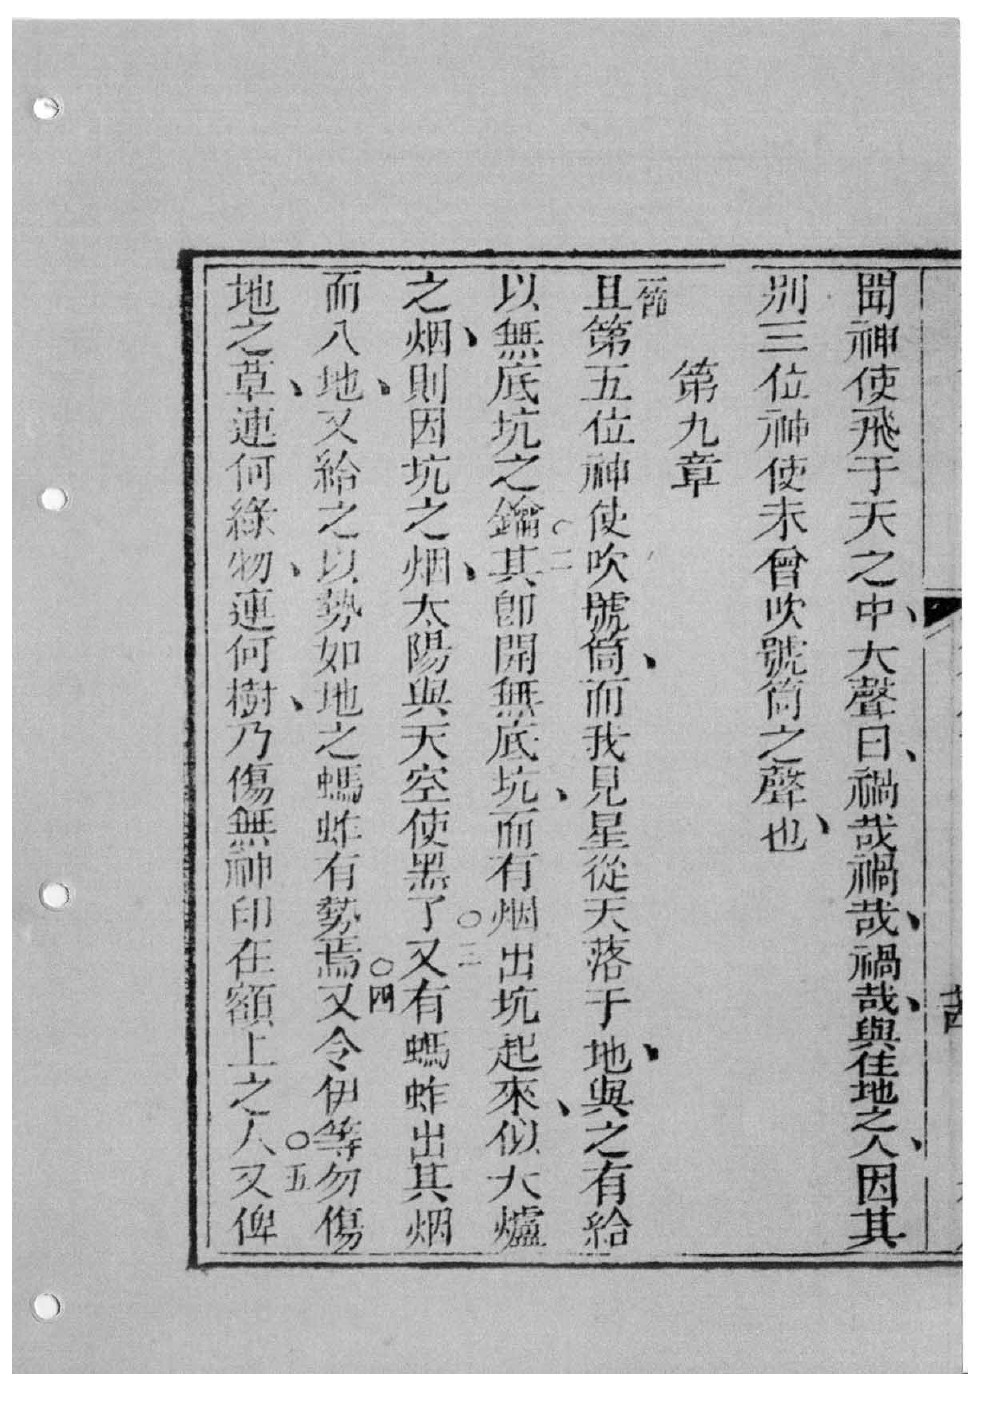 聞神使飛于天之中、大聲曰、禍哉禍哉、禍哉、與住地之人、因其
别三位神使未曾吹號筒之聲也、
第九章
一節且第五位神使吹號筒、而我見星從天落于地、與之有給
以無底坑之鑰○二其卽開無底坑、而有烟出坑起來、似大爐
之烟、則因坑之烟、太陽與天空使黑了○三又有螞蚱出其烟
而入地、又給之以勢如地之螞蚱有勢焉○四又令伊等勿傷
地之草、連何綠物、連何樹、乃傷無神印在額上之人○五又俾